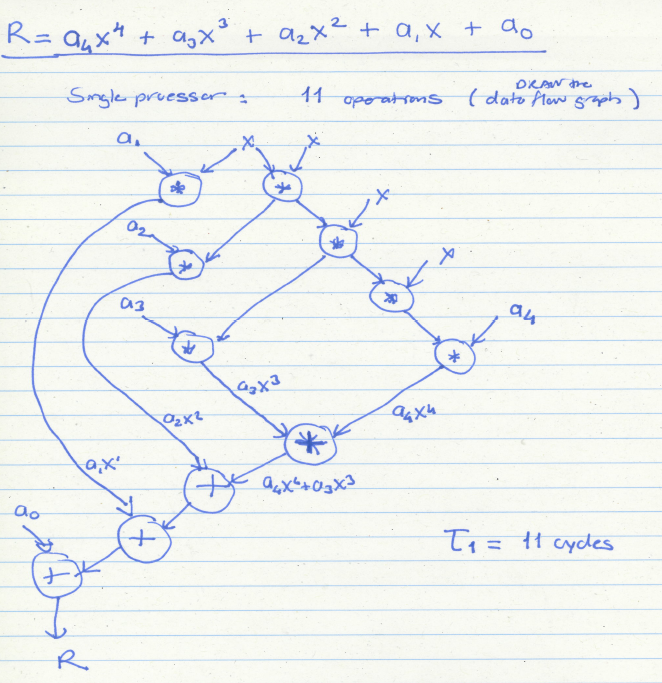 R = a₄x⁴ + a₃x³ + a₂x² + a₁x + a₀
DRAW the
Single processor : 11 operations (data flow graph)
a₁ x x
* *
x
a₂
* *
x
a₃ *
a₄
* *
a₃x³
a₂x² a₄x⁴
*
a₁x¹ + a₄x⁴+a₃x³
a₀
+ T₁ = 11 cycles
+
R